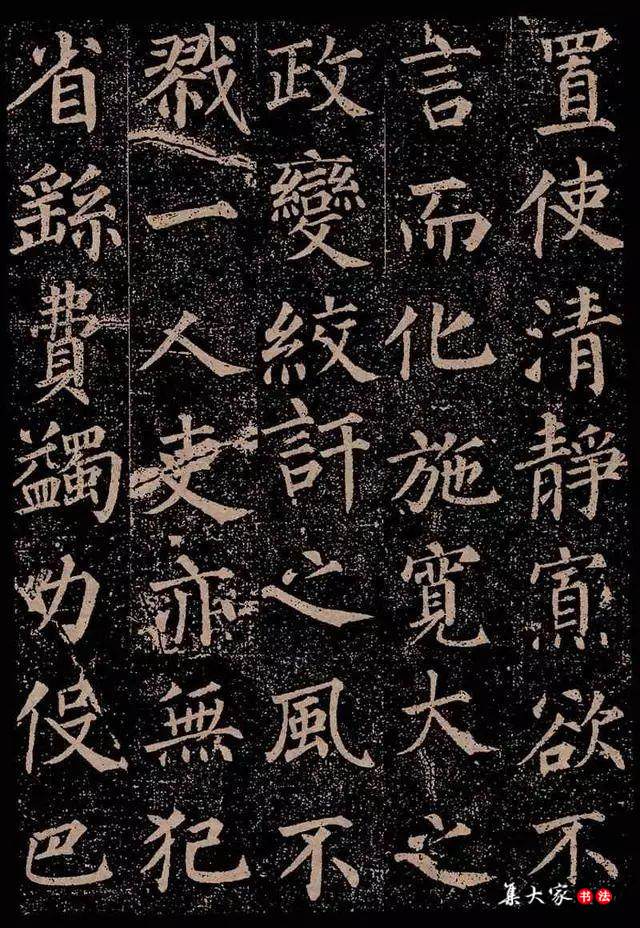 置使清靜寡欲不
言而化施寬大之
政變絞訐之風不
戮一人吏亦無犯
省繇費蠲力伇巴
集大家 书法